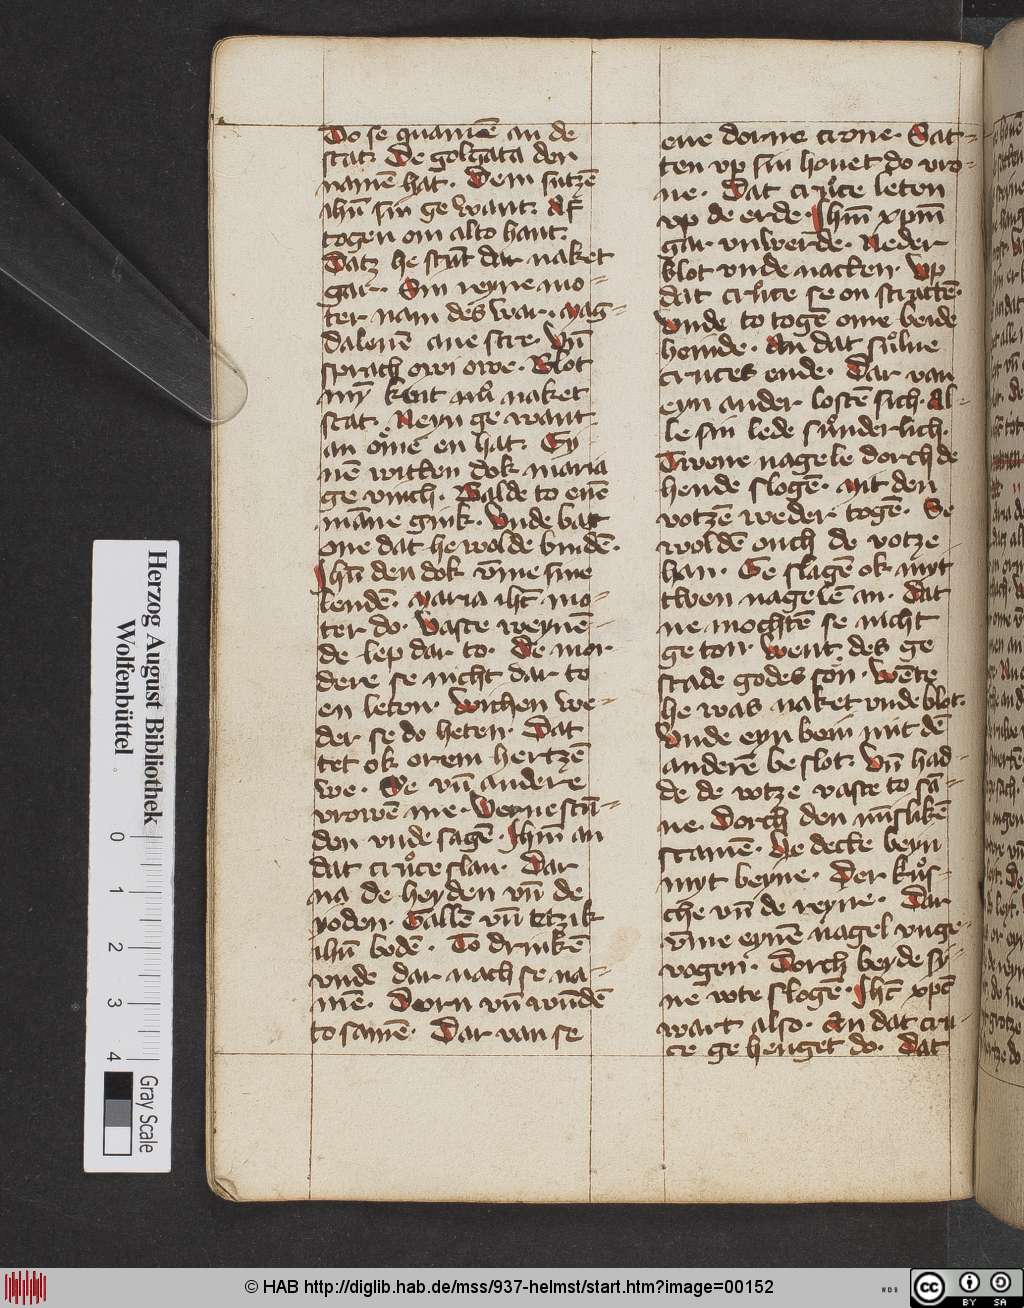 Do se quamē an de
stat. De golgata den
namē hat. Dem sutzē
ihū sin ge want. Af
togen om alto hant.
Datz he stūt dar naket
gar. Sin reyne mo-
ter nam des war. Mag-
dalenen aue stre. Vn̄
sprach owi owe. Blot
my̅ kint nu naket
stat. Neyn ge want
an ome en hat. Ey-
nē witten dok maria
ge vinch. Balde to enē
māne gink. Vnde bat
one dat he wolde bindē.
Ihū den dok v̄me sine
lendē. Maria ihc̄ mo-
ter do. Vaste weynē-
de lep dar to. De mor-
dere se nicht dar to
en leten. Wichen we-
der se do heten. Dat
tet ok orem hertzē
we. Se vn̄ andere
vrowē me. Verne stū-
den vnde sagē. Ihm̄ an
dat cruce slan. Dar
na de heyden vn̄ de
yoden. Gallē vn̄ etzik
ihū bodē. To drinkē
vnde dar nach se na-
mē. Dorn vn̄ wūdē
to samē. Dar van se
ene dorne crone. Sat-
ten vp sin houet do vro-
ne. Dat cruce leten
vp de erde. Ihm̄ xpm̄
gar vnwerde. Neder
blot vnde nacken. Vp
dat cruce se on stractē.
Vnde to togē ome beide
heinde. An dat sulue
cruces ende. Dar van
eyn ander lostē sich. Al-
le sin lede sunderlich.
Twene nagele dorch de
hende slogē. Mit den
votzē weder togē. Se
woldē ouch de votze
han. Ge slagē ok myt
twen nagelē an. Dat
ne mochtē se nicht
ge ton. Went des ge
stade godes son. Wēte
he was naket vnde blot.
Vnde eyn bein mit dē
anderē be slot. Vn̄ had-
de de votze vaste to sā-
ne. Dorch den mīslikē
scamē. He decke beyn
myt beyne. Der kus-
che vn̄ de reyne. Dar
v̄me eynē nagel vnge-
vogen. Dorch beyde sy-
ne vote slogē. Ihc̄ xpc̄
wart also. An dat cru-
ce ge henget do. Dat
Herzog August Bibliothek
Wolfenbüttel
0 1 2 3 4
Gray Scale
© HAB http://diglib.hab.de/mss/937-helmst/start.htm?image=00152
WDB
cc BY SA